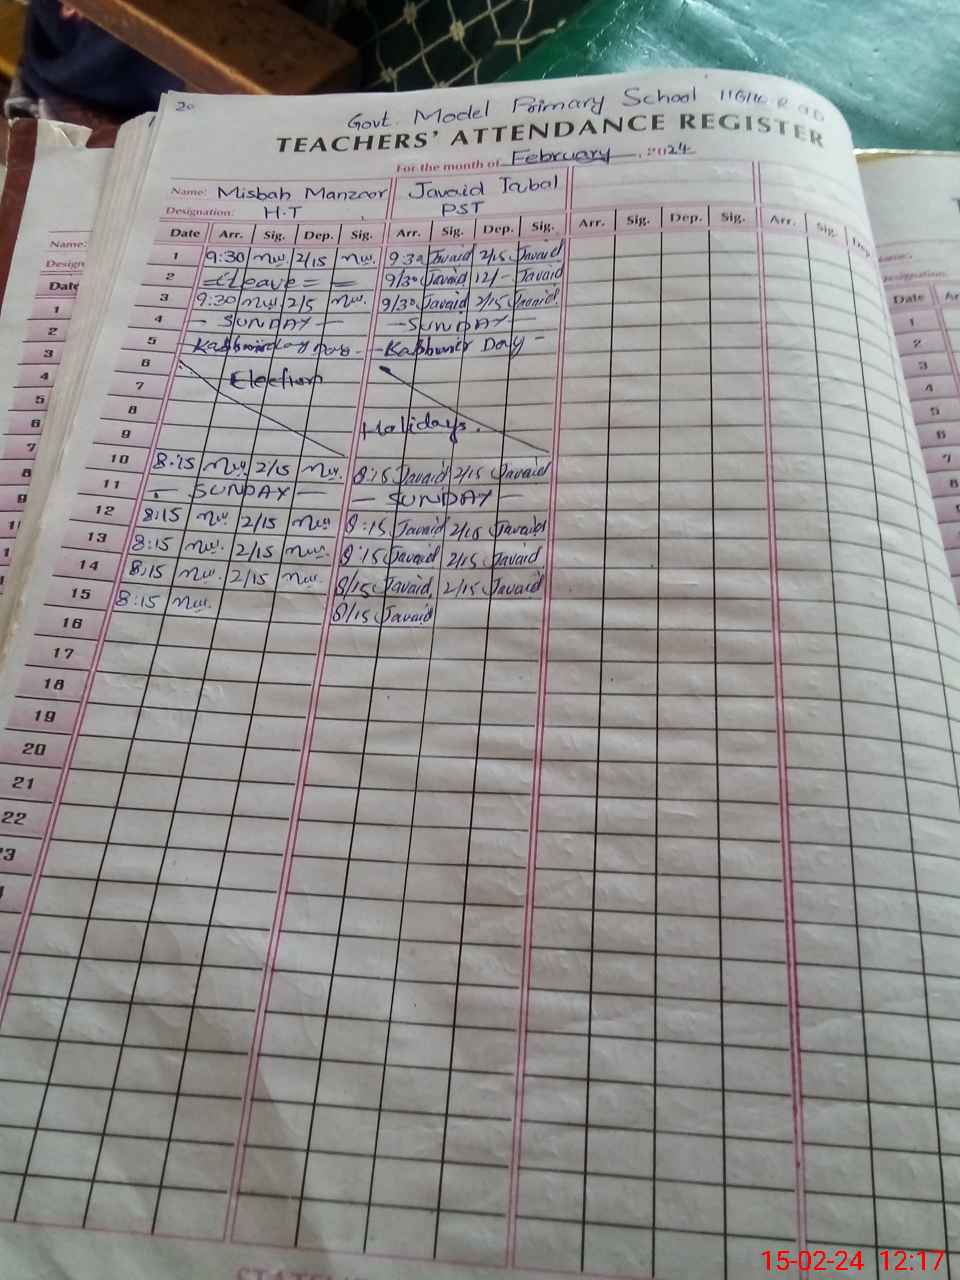 20
Govt. Model Primary School
TEACHERS' ATTENDANCE REGISTER
For the month of February, 2024
Name: Misbah Manzoor Javaid Iqbal
Designation: H.T PST
Date Arr. Sig. Dep. Sig. Arr. Sig. Dep. Sig. Arr. Sig. Dep. Sig. Arr. Sig. Dep
1 9:30 2/15 9:30 Javaid 2/15 Javaid
2 Leave 9/30 Javaid 12/- Javaid
3 9:30 2/5 9/30 Javaid 2/15 Javaid
4 - SUNDAY - - SUNDAY -
5 Day - - Kashmir Day -
6 Election
7
8 Holidays.
9
10 8:15 2/15 8:15 Javaid 2/15 Javaid
11 - SUNDAY - - SUNDAY -
12 8:15 2/15 8:15 Javaid 2/15 Javaid
13 8:15 2/15 8:15 Javaid 2/15 Javaid
14 8:15 2/15 8/15 Javaid 2/15 Javaid
15 8:15 8/15 Javaid
16
17
18
19
20
21
22
23
Name:
Date
1
2
3
4
5
6
7
8
9
Date
1
2
3
4
5
6
7
8
9
15-02-24 12:17